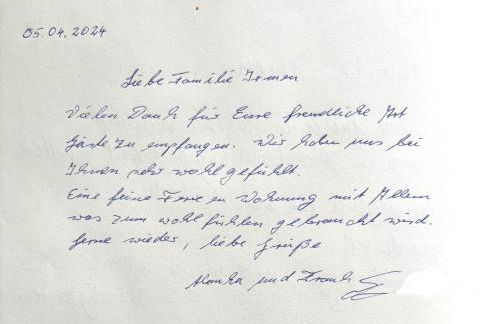 05.04.2024
Liebe Familie Irmen
Vielen Dank für Eure freundliche Art
Gäste zu empfangen. Wir haben uns bei
Ihnen sehr wohl gefühlt.
Eine feine Ferienwohnung mit Allem
was zum wohlfühlen gebraucht wird.
Gerne wieder, liebe Grüße
und Frank